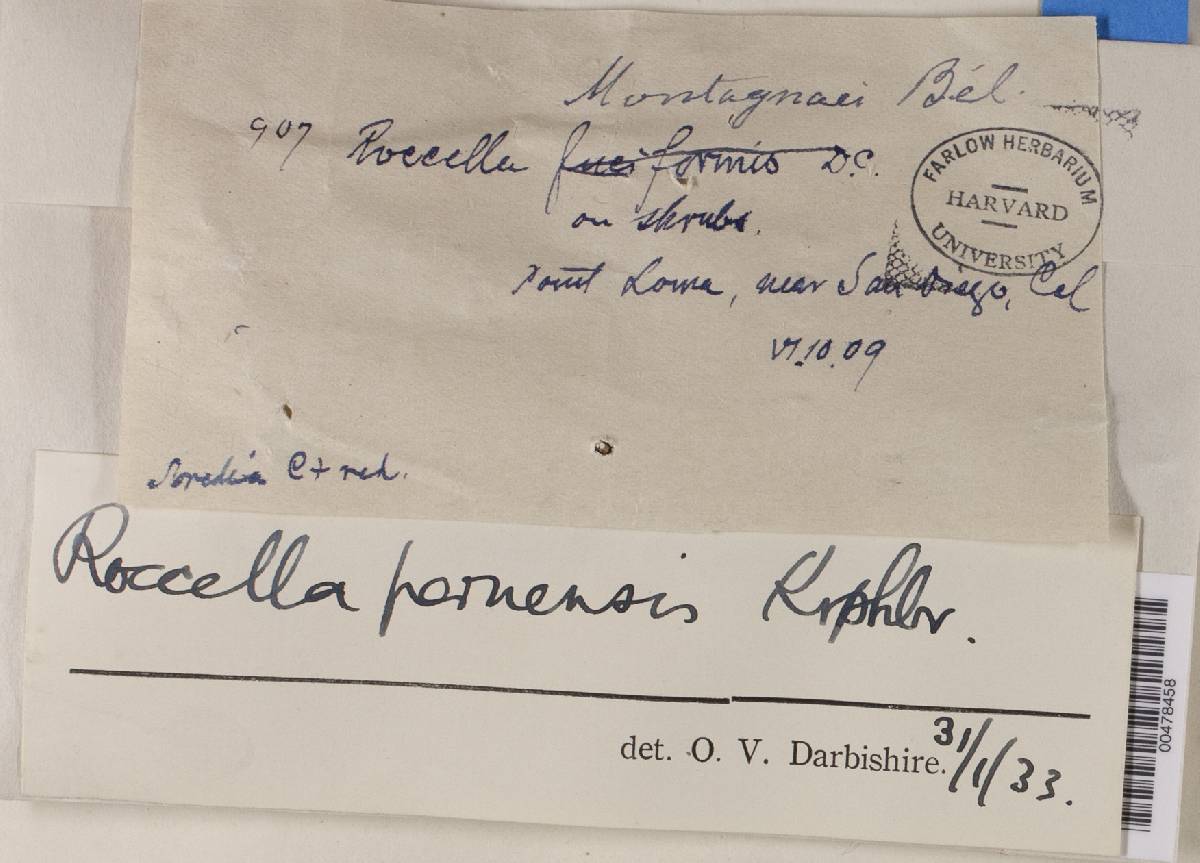 Montagnaei Bél.
907 Roccella fuciformis D.C.
on shrubs.
Point Loma, near San Diego, Cal
VI.10.09
FARLOW HERBARIUM
HARVARD
UNIVERSITY
Soredia C+ red.
Roccella peruensis Krphbr.
det. O. V. Darbishire. 31/1/33.
00478458